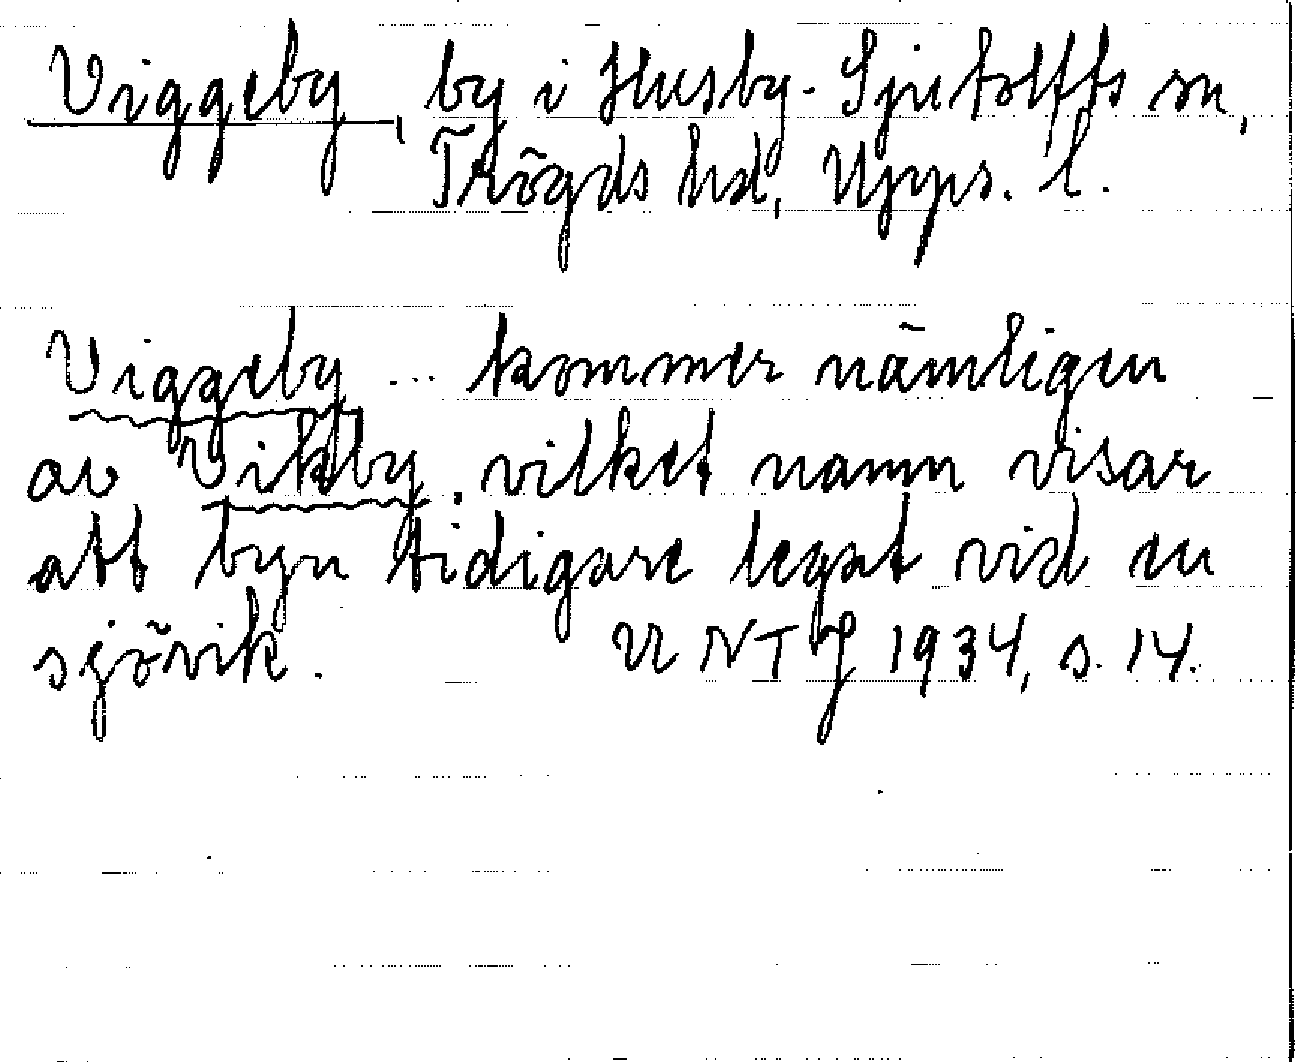 Viggeby, by i Husby-Sjutolfts sn,
Trögds hd, Upps. l.
Viggeby ... kommer nämligen
av Vikby, vilket namn visar
att byn tidigare legat vid en
sjövik. Ur NTJ 1934, s. 14.